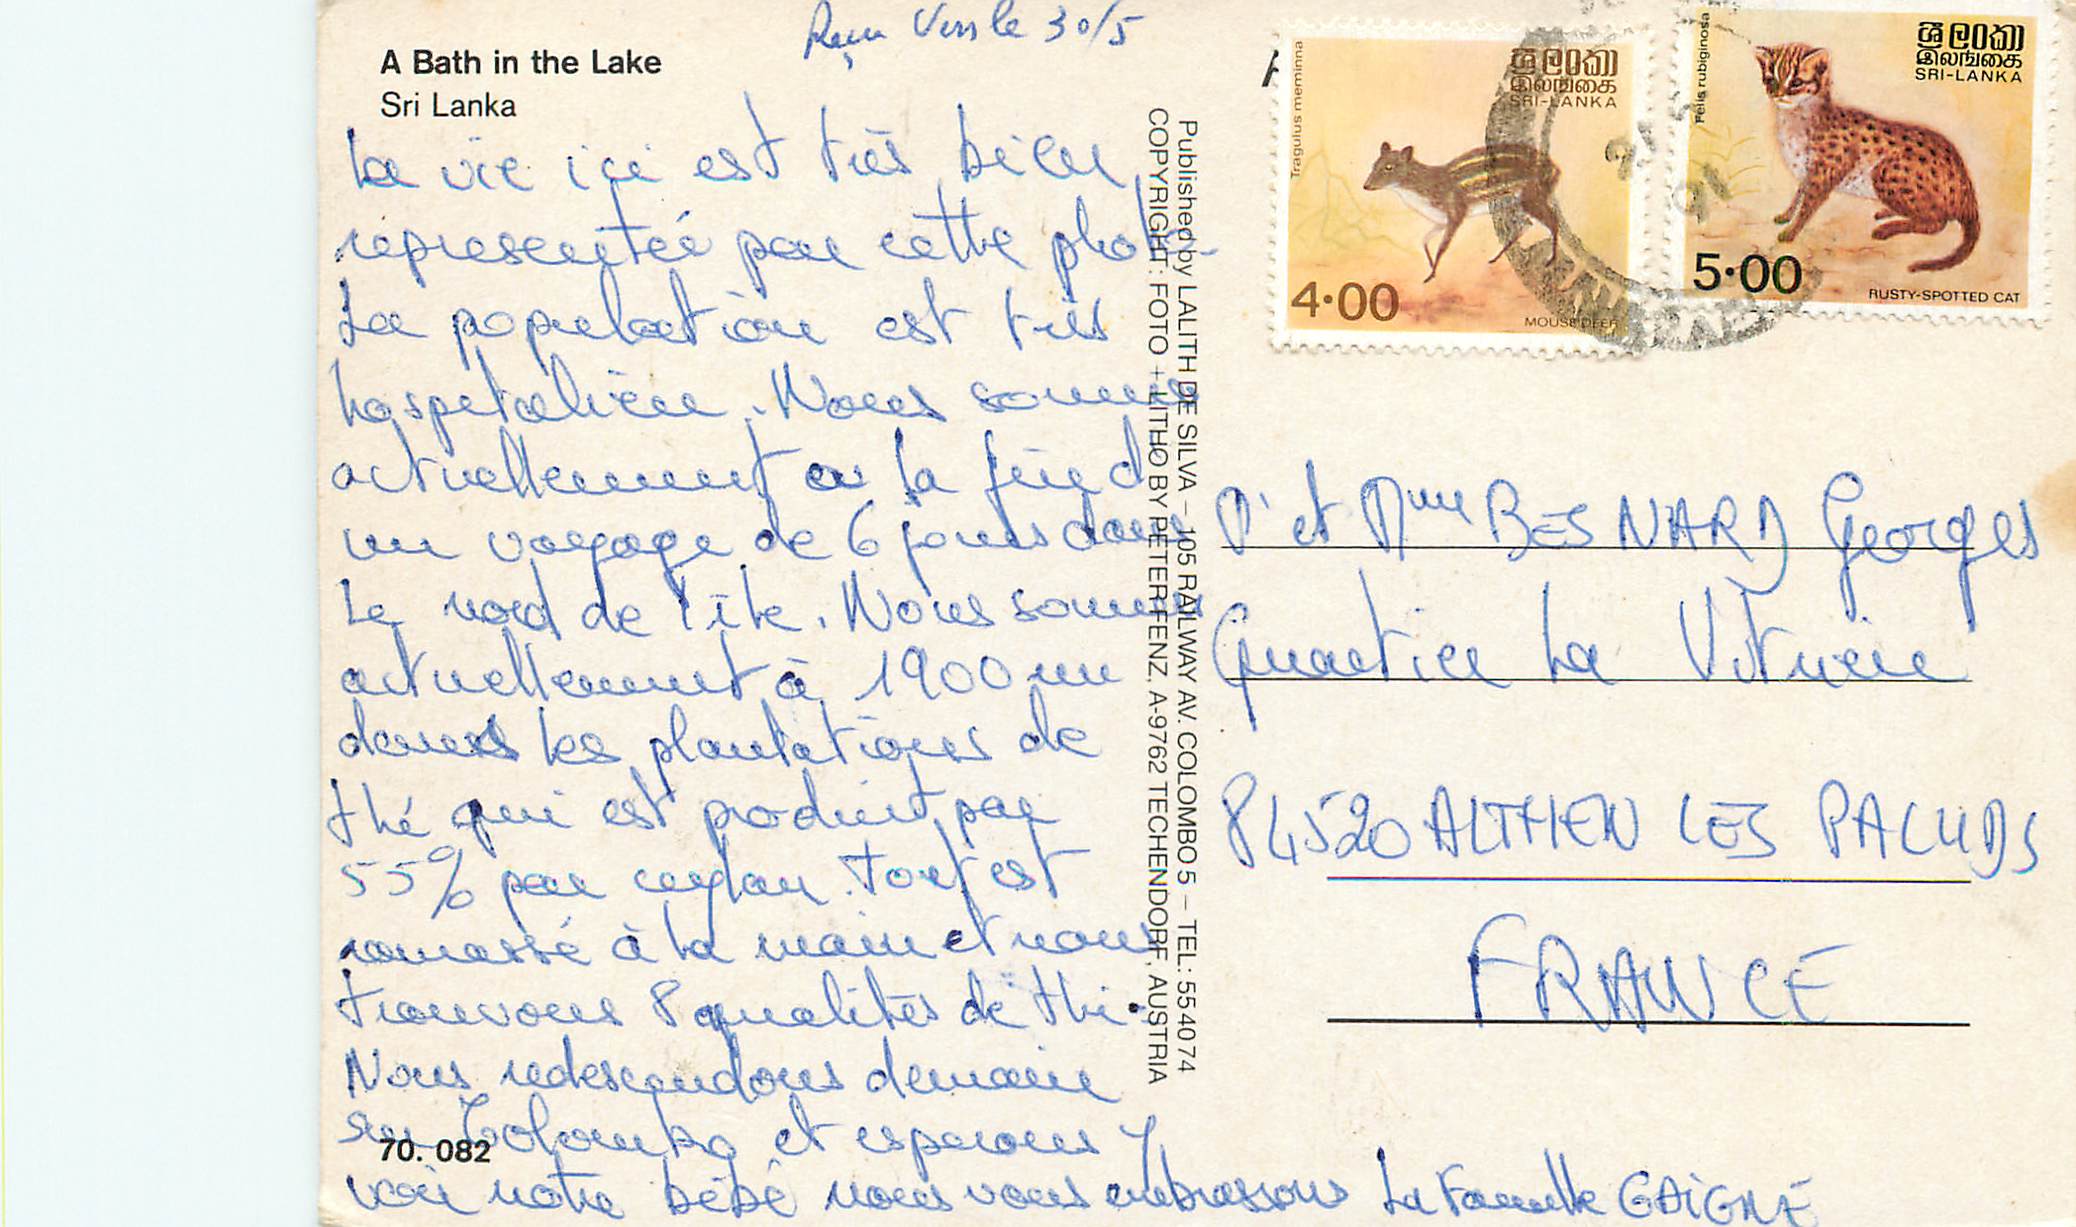 Reçu Vers le 30/5
A Bath in the Lake
Sri Lanka
La vie ici est très bien
représentée par cette photo.
La population est très
hospitalière. Nous sommes
actuellement a la fin d
un voyage de 6 jours dans
le nord de l'île. Nous sommes
actuellement à 1900 m
dans les plantations de
thé qui est produit par
55% par ceylan. Tout est
ramassé à la main et nous
trouvons 8 qualités de thé.
Nous redescendons demain
sur Colombo et esperons y
voir notre bébé nous vous embrassons La Famille GAIGNÉ
70. 082
Published by LALITH DE SILVA – 105 RAILWAY AV. COLOMBO 5 – TEL: 554074
COPYRIGHT: FOTO + LITHO BY PETER FENZ, A-9762 TECHENDORF, AUSTRIA
Tragulus meminna
ශ්‍රී ලංකා
இலங்கை
SRI-LANKA
4·00
MOUSE DEER
Felis rubiginosa
ශ්‍රී ලංකා
இலங்கை
SRI-LANKA
5·00
RUSTY-SPOTTED CAT
Mr et Mme BESNARD Georges
Quartier La
84520 ALTHEN LES PALUDS
FRANCE